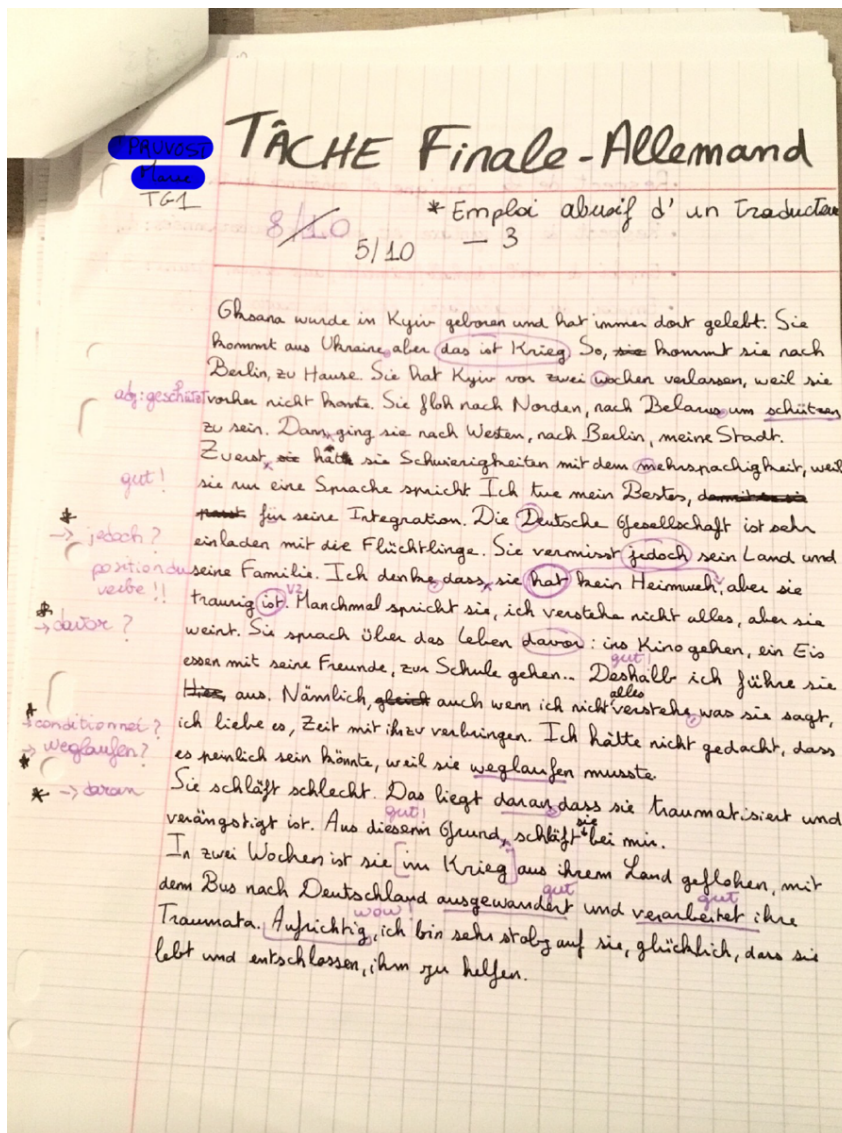 TÂCHE Finale - Allemand
PRUVOST
Marie
TG1
* Emploi abusif d'un traducteur
8/10
5/10 - 3
Oksana wurde in Kyiv geboren und hat immer dort gelebt. Sie
kommt aus Ukraine, aber das ist Krieg So, sie kommt sie nach
Berlin, zu Hause. Sie hat Kyiv vor zwei wochen verlassen, weil sie
adj: geschützt vorher nicht konnte. Sie floh nach Norden, nach Belarus um schützen
zu sein. Dann, ging sie nach Westen, nach Berlin, meine Stadt.
Zuerst, sie hatte sie Schwierigkeiten mit dem mehrspachigkeit, weil
gut! sie nur eine Sprache spricht Ich tue mein Bestes,
für seine Integration. Die Deutsche Gesellschaft ist sehr
* → jedoch? einladen mit die Flüchtlinge. Sie vermisst jedoch sein Land und
position du verbe !! seine Familie. Ich denke, dass, sie hat kein Heimweh, aber sie
traurig ist. V2 Manchmal spricht sie, ich verstehe nicht alles, aber sie
* → davor? weint. Sie sprach über das Leben davor : ins Kino gehen, ein Eis
essen mit seine Freunde, zur Schule gehen... gut Deshalb ich führe sie
Hier, aus. Nämlich, gleich auch wenn ich nicht alles verstehe, was sie sagt,
* → conditionnel? ich liebe es, Zeit mit ihr zu verbringen. Ich hätte nicht gedacht, dass
* → weglaufen? es peinlich sein könnte, weil sie weglaufen musste.
* → daran Sie schläft schlecht. Das liegt daran, dass sie traumatisiert und
verängstigt ist. gut! Aus diesem Grund, schläft sie bei mir.
In zwei Wochen ist sie [im Krieg] aus ihrem Land geflohen, mit
dem Bus nach Deutschland ausgewandert gut und verarbeitet gut ihre
Traumata. wow! Aufrichtig, ich bin sehr stolz auf sie, glücklich, dass sie
lebt und entschlossen, ihm zu helfen.